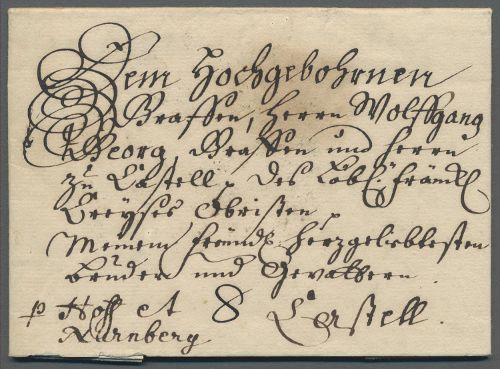 Dem Hochgebohrnen
Graffen, Herrn Wolffgang
Georg, Graffen und Herrn
zu Castell, des Löbl. Fränkl.
Creyses Obristen,
Meinem freündl. Herzgeliebtesten
Bruder und Gevattern.
p Hoff et 8 Castell.
Nürnberg